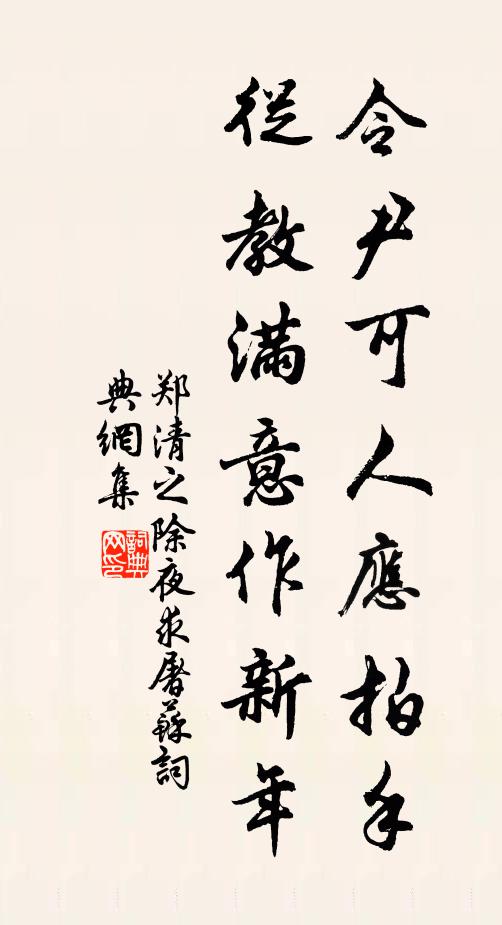 令尹可人應拍手
從教滿意作新年
郑清之除夜求屠蘇詞
典網集
詞典网印